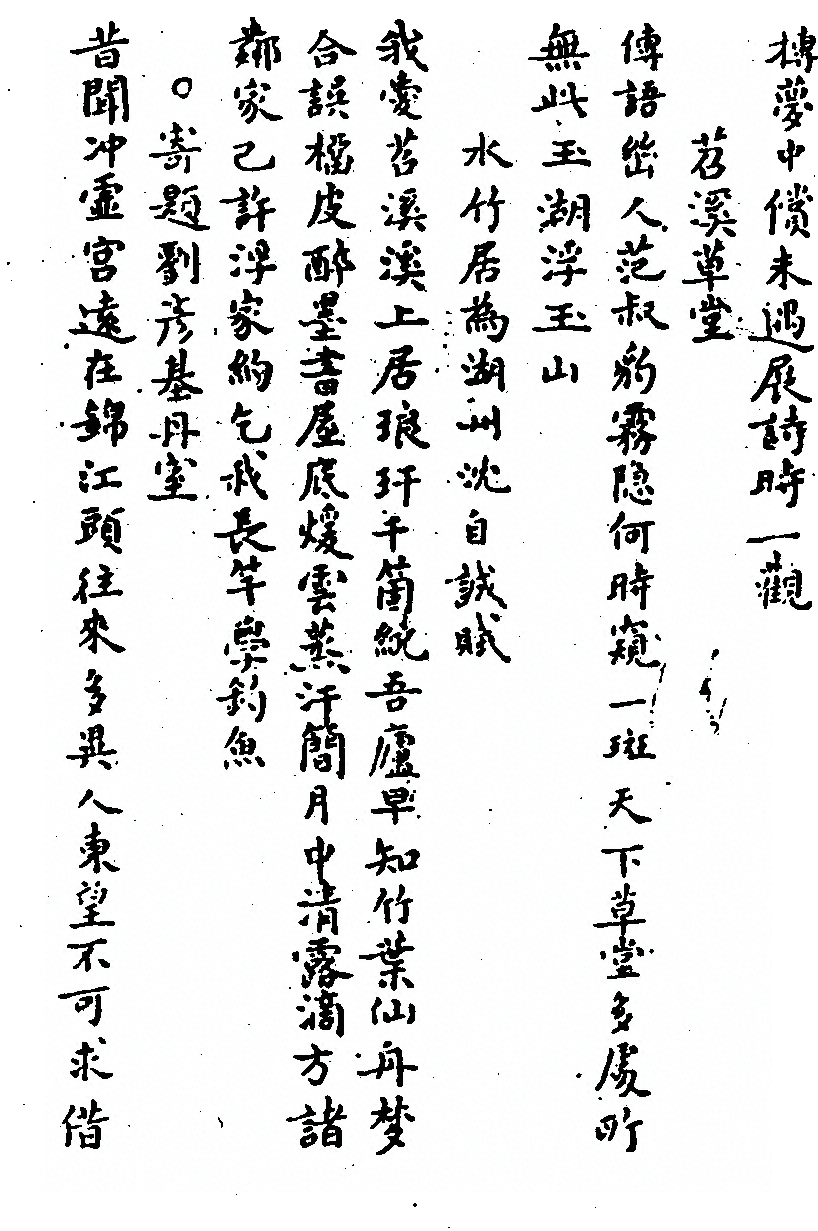 摶夢中償未遇展詩時一觀
苕溪草堂
傳語幽人范叔豹霧隐何時窺一斑天下草堂多處所
無此玉湖浮玉山
水竹居為湖州沈自誠賦
我愛苕溪溪上居琅玕千箇繞吾廬早知竹葉仙舟梦
合誤榴皮醉墨書屋底煖雲蒸汗簡月中清露滴方諸
鄰家已許浮家約乞我長竿學釣魚
○寄題劉彦基丹室
昔聞冲靈宫遠在錦江頭往來多異人東望不可求偕